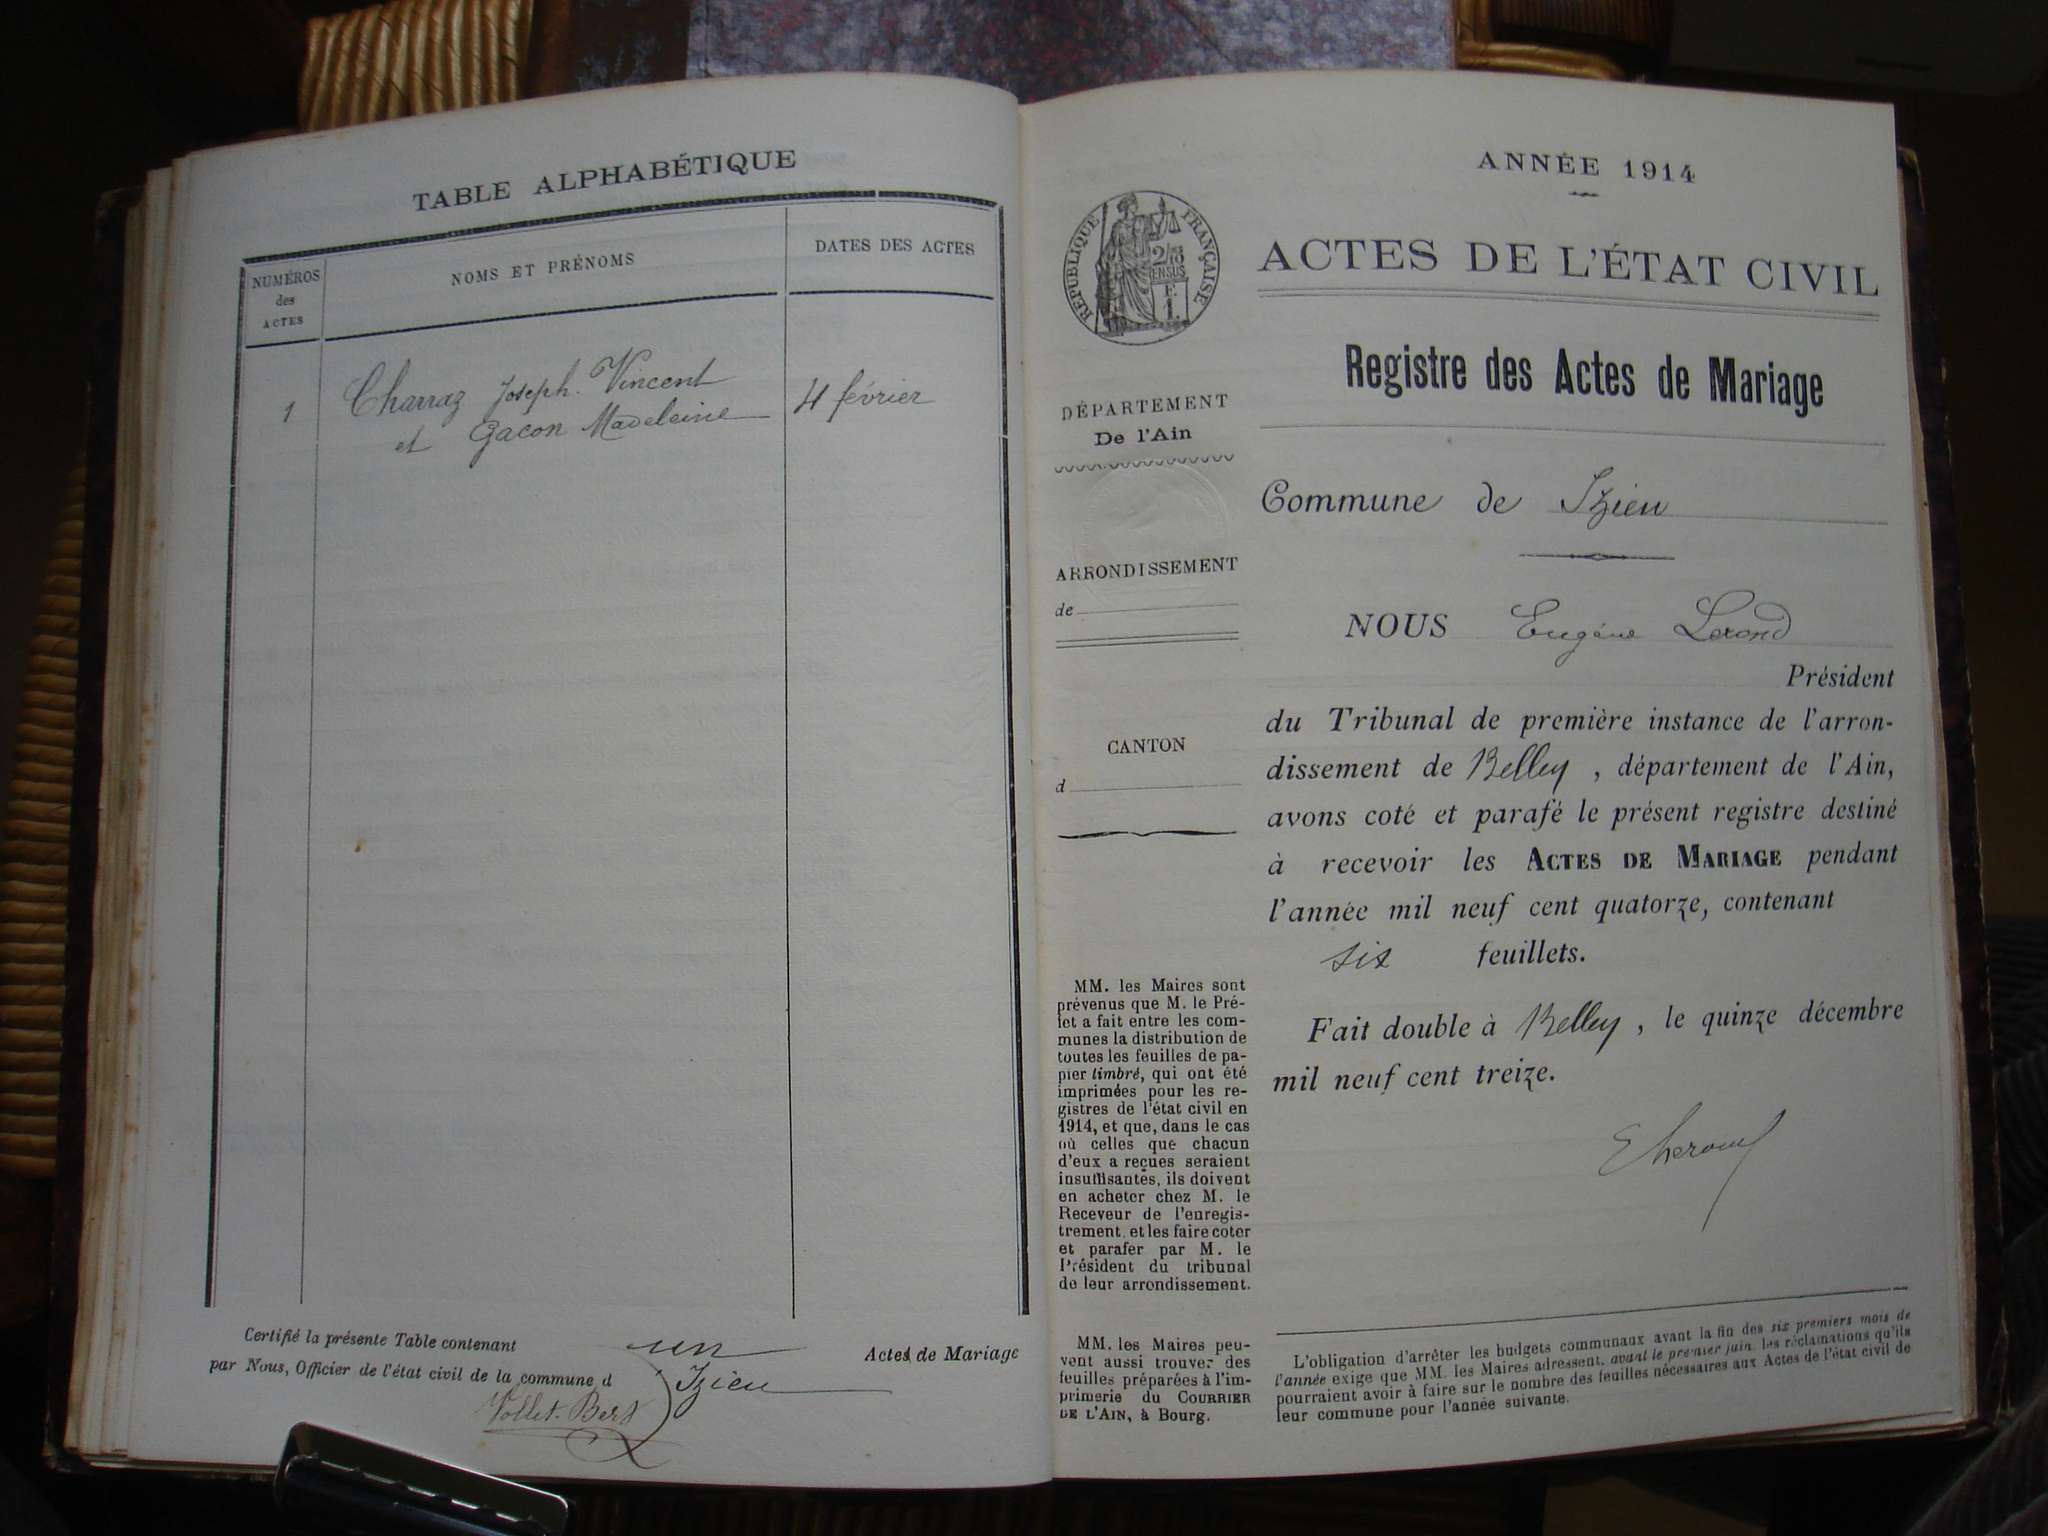 TABLE ALPHABÉTIQUE
NUMÉROS
des
ACTES
NOMS ET PRÉNOMS
DATES DES ACTES
1
Charraz Joseph. Vincent
et Gacon Madeleine
4 février
Certifié la présente Table contenant un Actes de Mariage
par Nous, Officier de l'état civil de la commune d Izieu
ANNÉE 1914
RÉPUBLIQUE FRANÇAISE
2/10
EN SUS
F.
1.
ACTES DE L'ÉTAT CIVIL
Registre des Actes de Mariage
DÉPARTEMENT
De l'Ain
ARRONDISSEMENT
de
CANTON
d
MM. les Maires sont
prévenus que M. le Pré-
fet a fait entre les com-
munes la distribution de
toutes les feuilles de pa-
pier timbré, qui ont été
imprimées pour les re-
gistres de l'état civil en
1914, et que, dans le cas
où celles que chacun
d'eux a reçues seraient
insuffisantes, ils doivent
en acheter chez M. le
Receveur de l'enregis-
trement, et les faire coter
et parafer par M. le
Président du tribunal
de leur arrondissement.
MM. les Maires peu-
vent aussi trouver des
feuilles préparées à l'im-
primerie du COURRIER
DE L'AIN, à Bourg.
Commune de Izieu
NOUS Eugène
Président
du Tribunal de première instance de l'arron-
dissement de Belley, département de l'Ain,
avons coté et parafé le présent registre destiné
à recevoir les ACTES DE MARIAGE pendant
l'année mil neuf cent quatorze, contenant
six feuillets.
Fait double à Belley, le quinze décembre
mil neuf cent treize.
L'obligation d'arrêter les budgets communaux avant la fin des six premiers mois de
l'année exige que MM. les Maires adressent, avant le premier juin, les réclamations qu'ils
pourraient avoir à faire sur le nombre des feuilles nécessaires aux Actes de l'état civil de
leur commune pour l'année suivante.